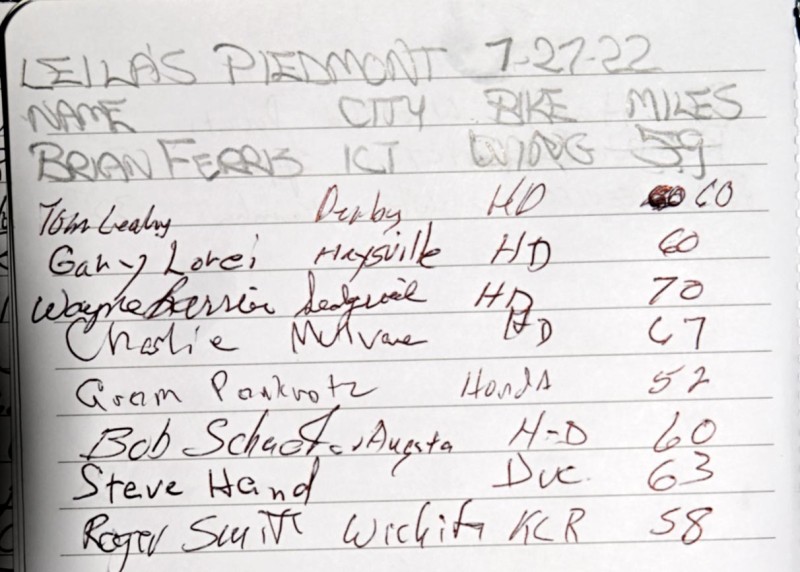 LEILA'S PIEDMONT 7-27-22
NAME CITY BIKE MILES
BRIAN FERRIS ICT 59
Tom Leahy Derby HD 60
Gary Lorei Haysville HD 60
Wayne HD 70
Charlie McIlvane HD 67
Gram Pankratz Honda 52
Bob Schaefer Augsta H-D 60
Steve Hand Duc. 63
Roger Smith Wichita KLR 58